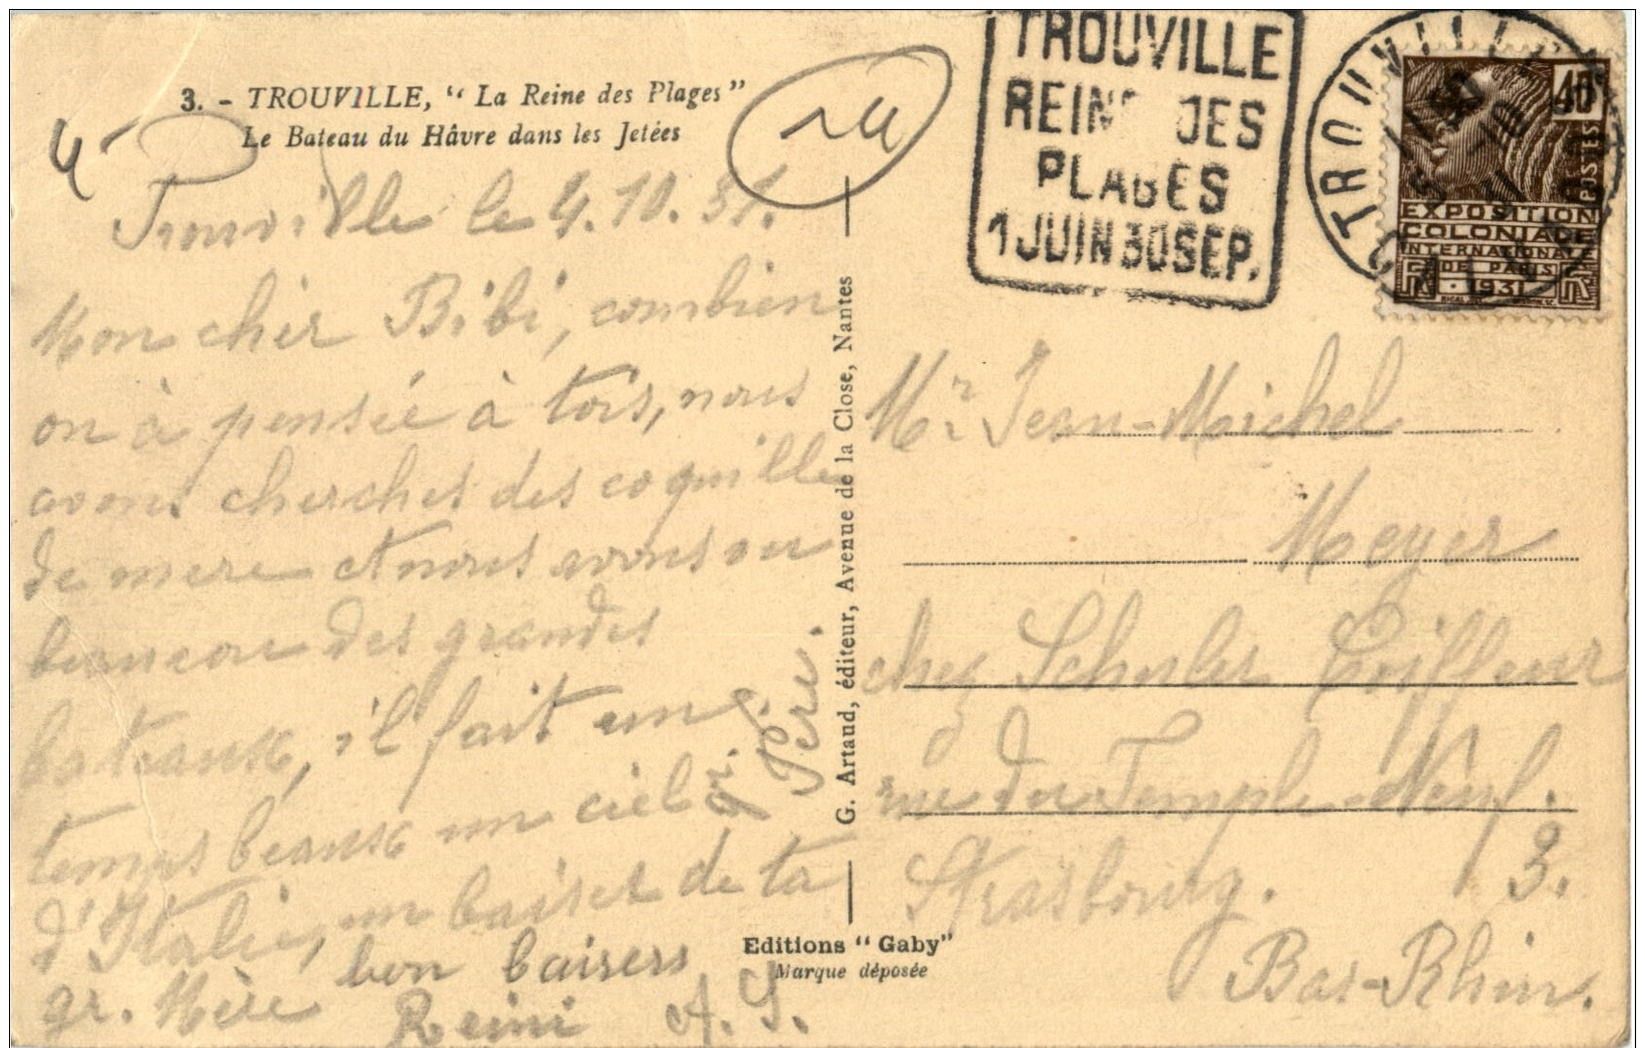 3. - TROUVILLE, “ La Reine des Plages”
Le Bateau du Hâvre dans les Jetées
Trouville le 4.10.31.
Mon cher Bibi, combien
on à pensée à tois, nous
avons cherches des coquille
de mere et nous avons vu
beaucou des grandes
bateaux, il fait une
temps beaux un ciel
d'Italie, un baiser de ta
gr. Mère
gr. Père.
bon baisers
Reini A. S.
G. Artaud, éditeur, Avenue de la Close, Nantes
Editions “ Gaby”
Marque déposée
TROUVILLE
REINE DES
PLAGES
1 JUIN 30 SEP.
TROUVILLE
40
POSTES
EXPOSITION
COLONIALE
INTERNATIONALE
DE PARIS
1931
Mr Jean-Michel
Meyer
chez Schuler Coiffeur
rue du Temple-Neuf.
3.
Strasbourg.
Bas-Rhin.